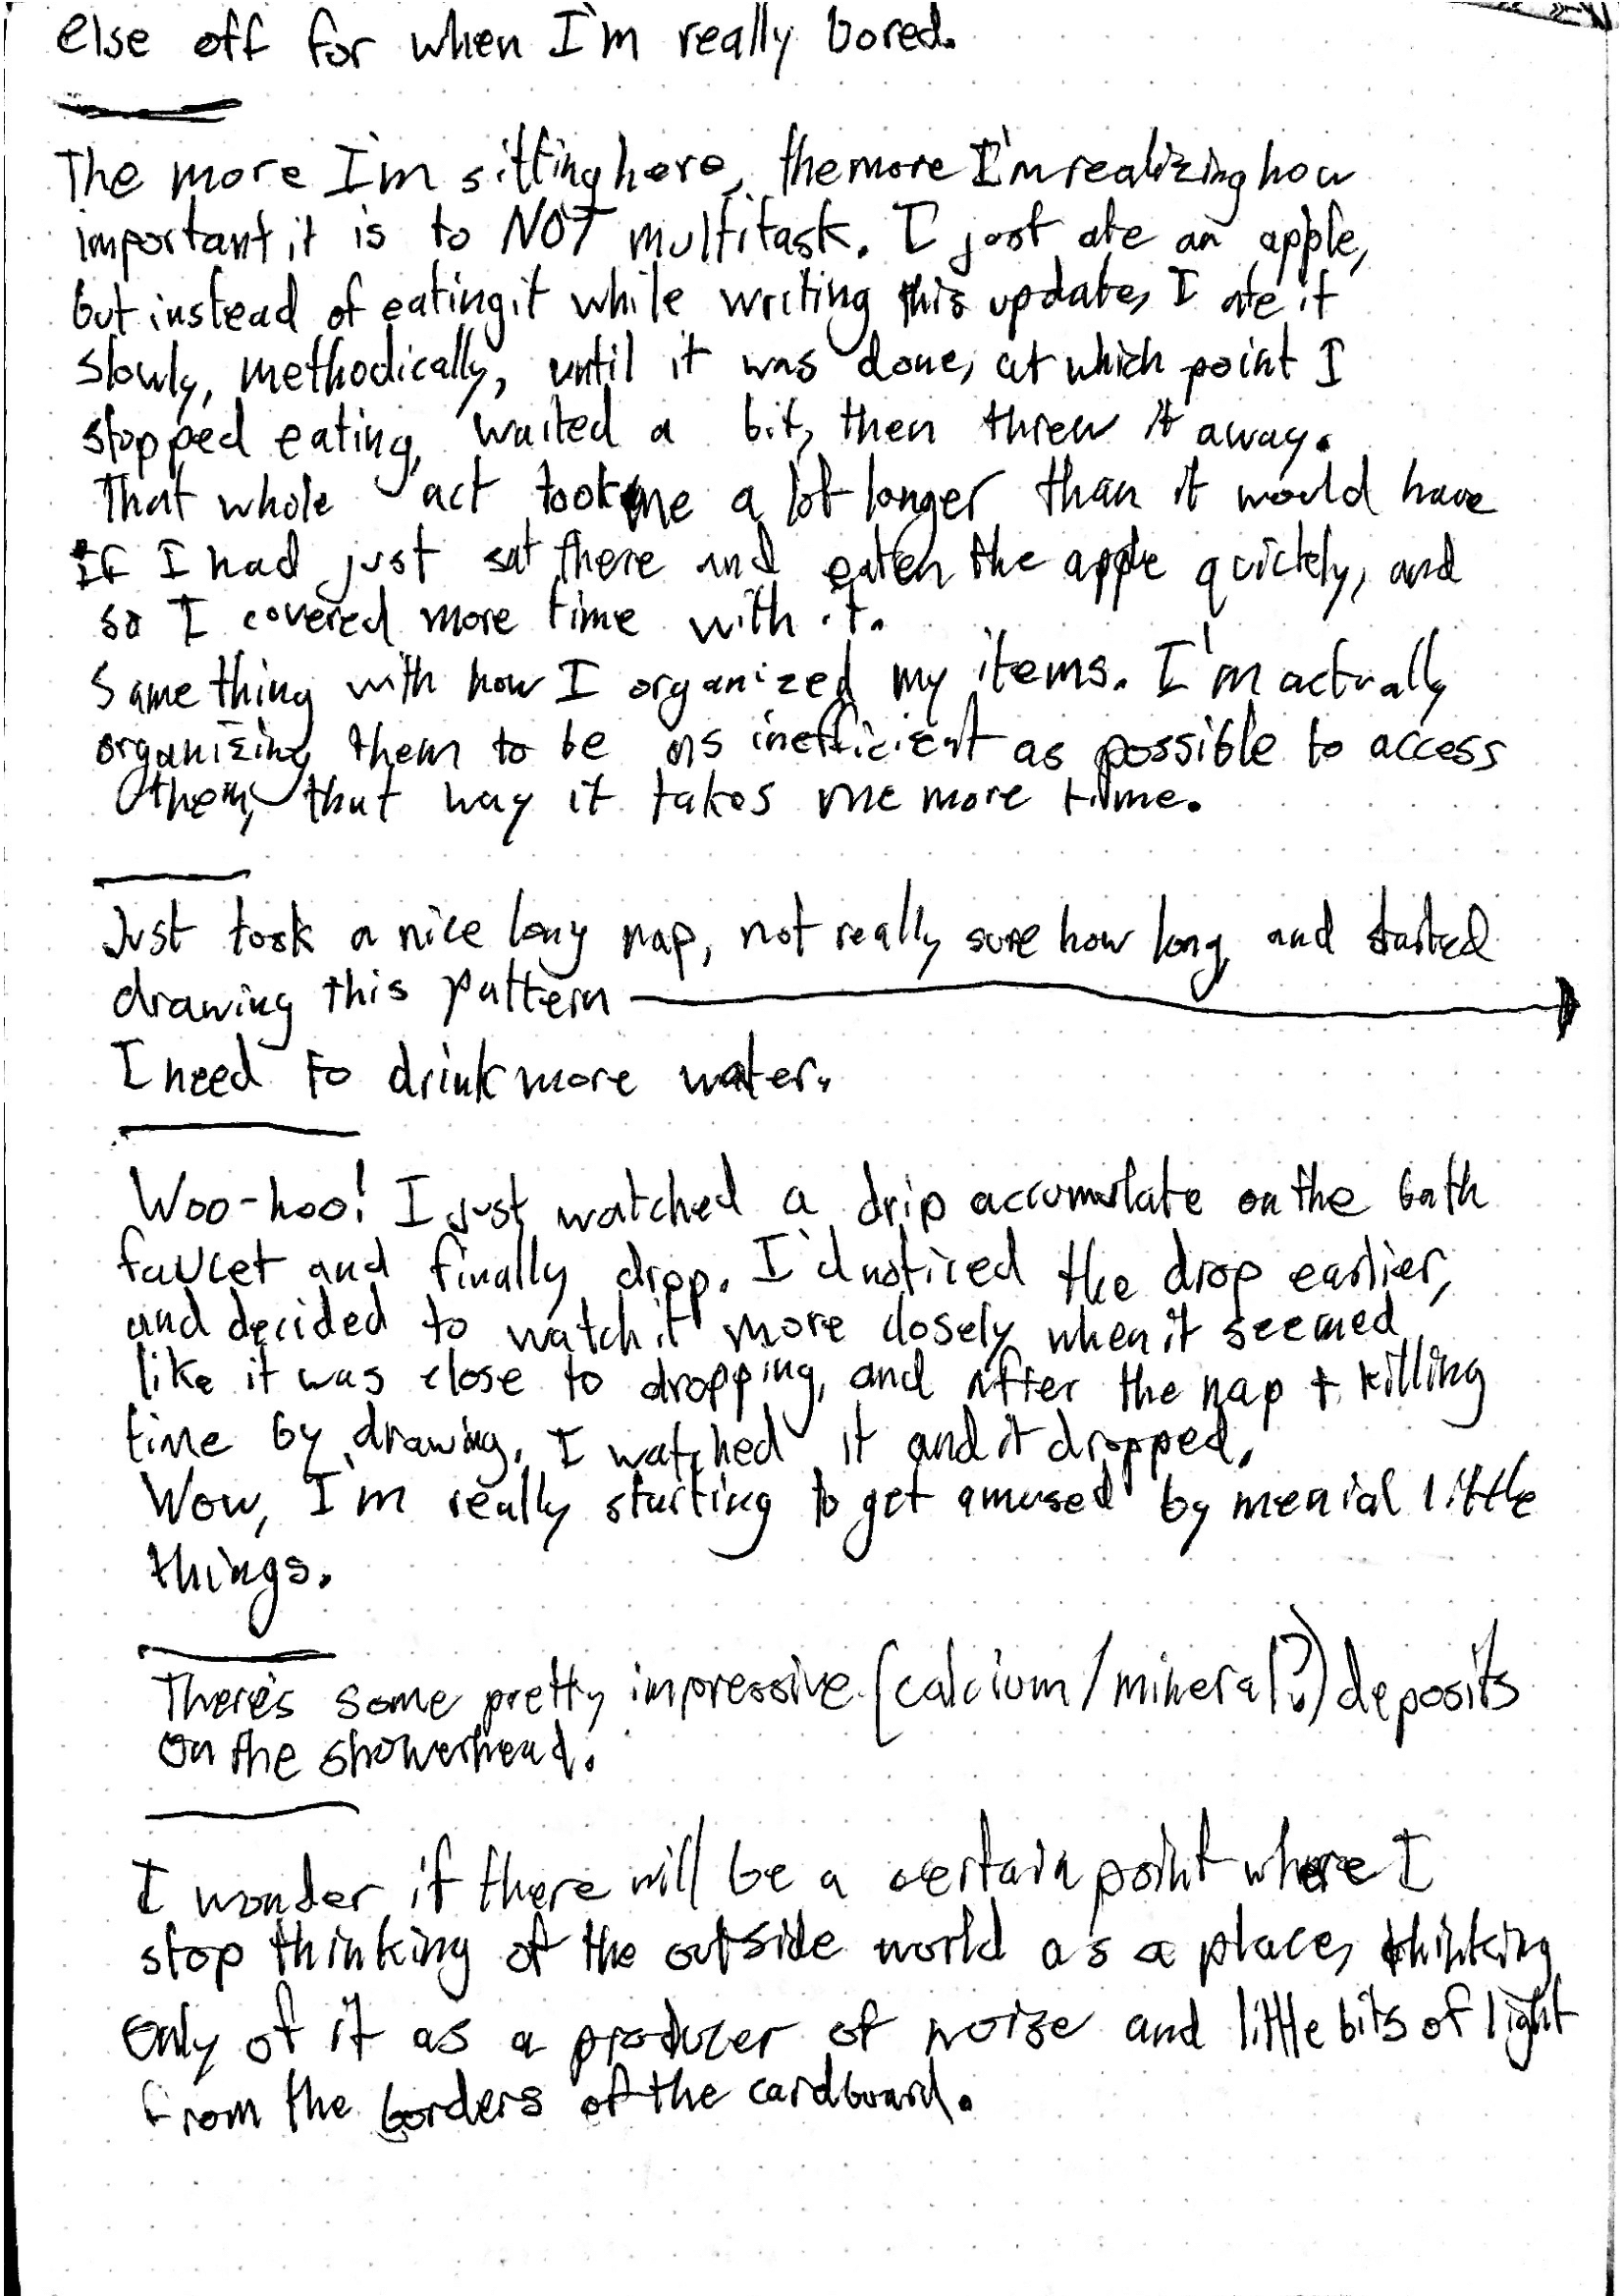 else off for when I'm really bored.
The more I'm sitting here, the more I'm realizing how
important it is to NOT multitask. I just ate an apple,
but instead of eating it while writing this update, I ate it
slowly, methodically, until it was done, at which point I
stopped eating, waited a bit, then threw it away.
That whole act took me a lot longer than it would have
if I had just sat there and eaten the apple quickly, and
so I covered more time with it.
Same thing with how I organized my items. I'm actually
organizing them to be as inefficient as possible to access
them, that way it takes me more time.
Just took a nice long nap, not really sure how long, and started
drawing this pattern
I need to drink more water.
Woo-hoo! I just watched a drip accumulate on the bath
faucet and finally drop. I'd noticed the drop earlier,
and decided to watch it more closely when it seemed
like it was close to dropping, and after the nap + killing
time by drawing, I watched it and it dropped.
Wow, I'm really starting to get amused by menial little
things.
There's some pretty impressive (calcium/mineral?) deposits
on the showerhead.
I wonder if there will be a certain point where I
stop thinking of the outside world as a place, thinking
only of it as a producer of noise and little bits of light
from the borders of the cardboard.